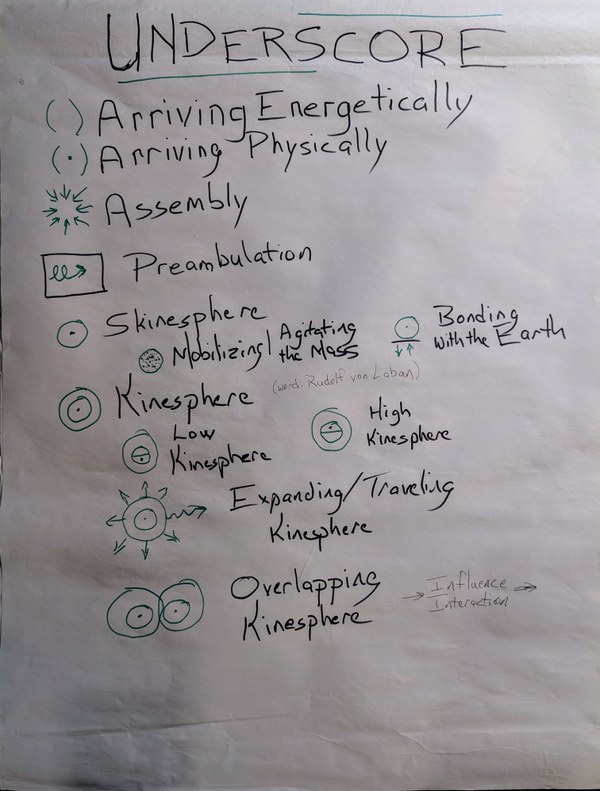 UNDERSCORE
Arriving Energetically
Arriving Physically
Assembly
Preambulation
Skinesphere
Mobilizing/Agitating the Mass
Bonding with the Earth
Kinesphere
(word: Rudolf von Laban)
Low Kinesphere
High Kinesphere
Expanding/Traveling
Kinesphere
Overlapping
Kinesphere
→ Influence →
Interaction